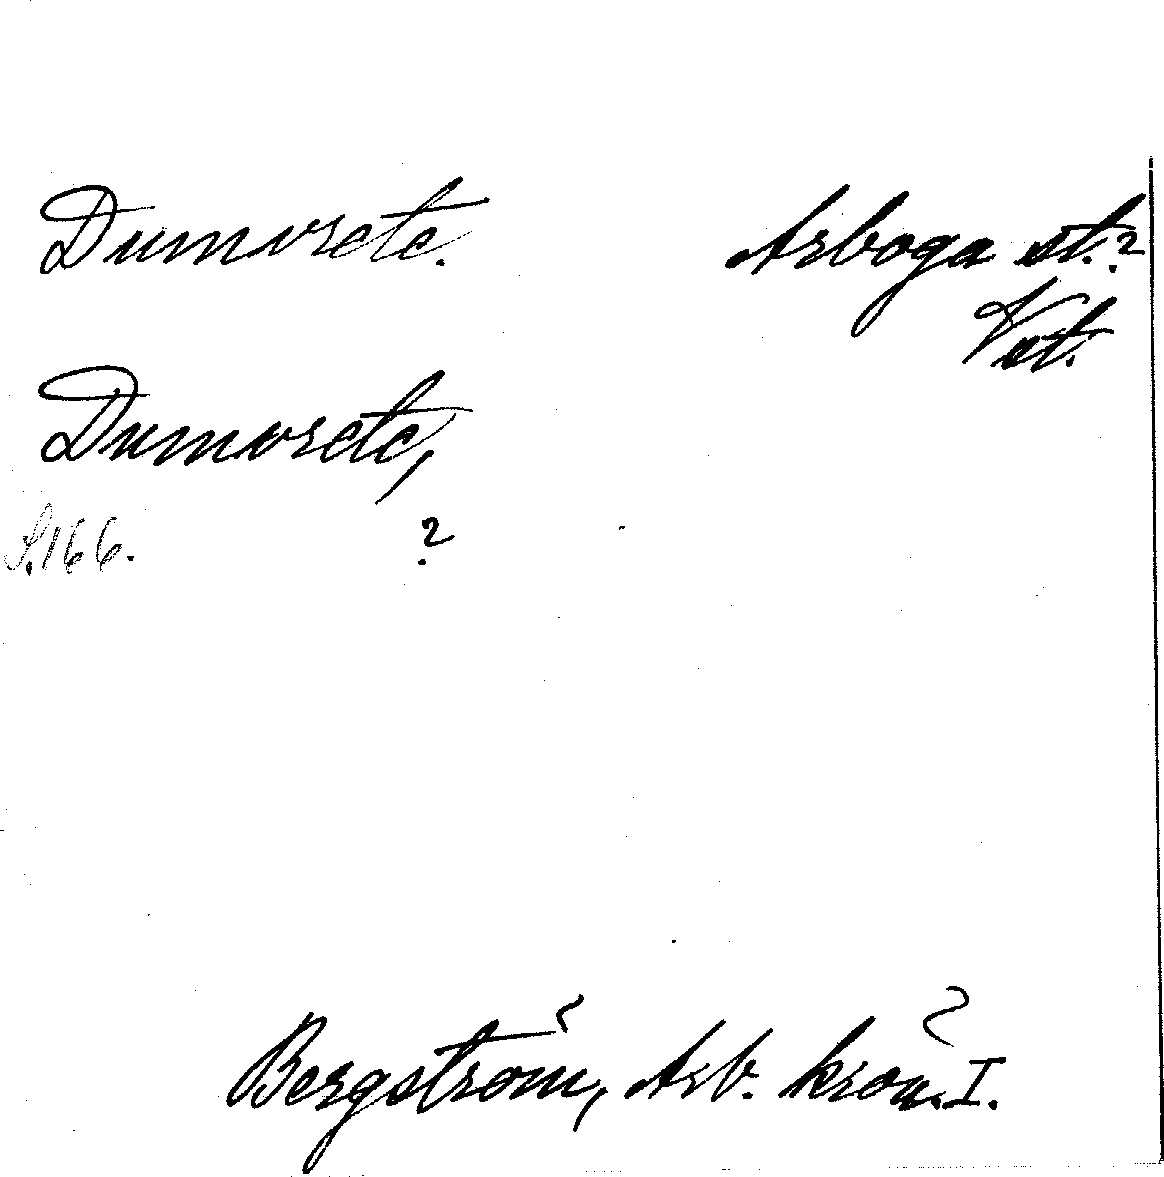 Dumvrete. Arboga st.?
Vst.
Dumvrete,
S. 166. ?
Bergström, Arb. krön. I.